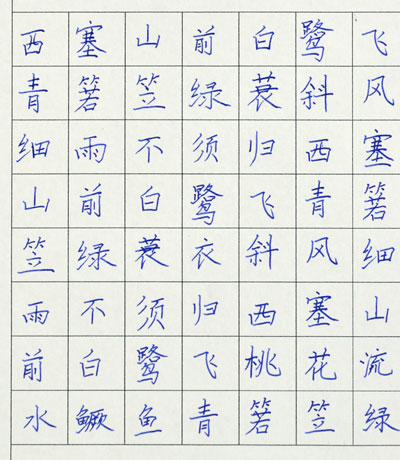 西塞山前白鹭飞
青箬笠绿蓑斜风
细雨不须归西塞
山前白鹭飞青箬
笠绿蓑衣斜风细
雨不须归西塞山
前白鹭飞桃花流
水鳜鱼青箬笠绿